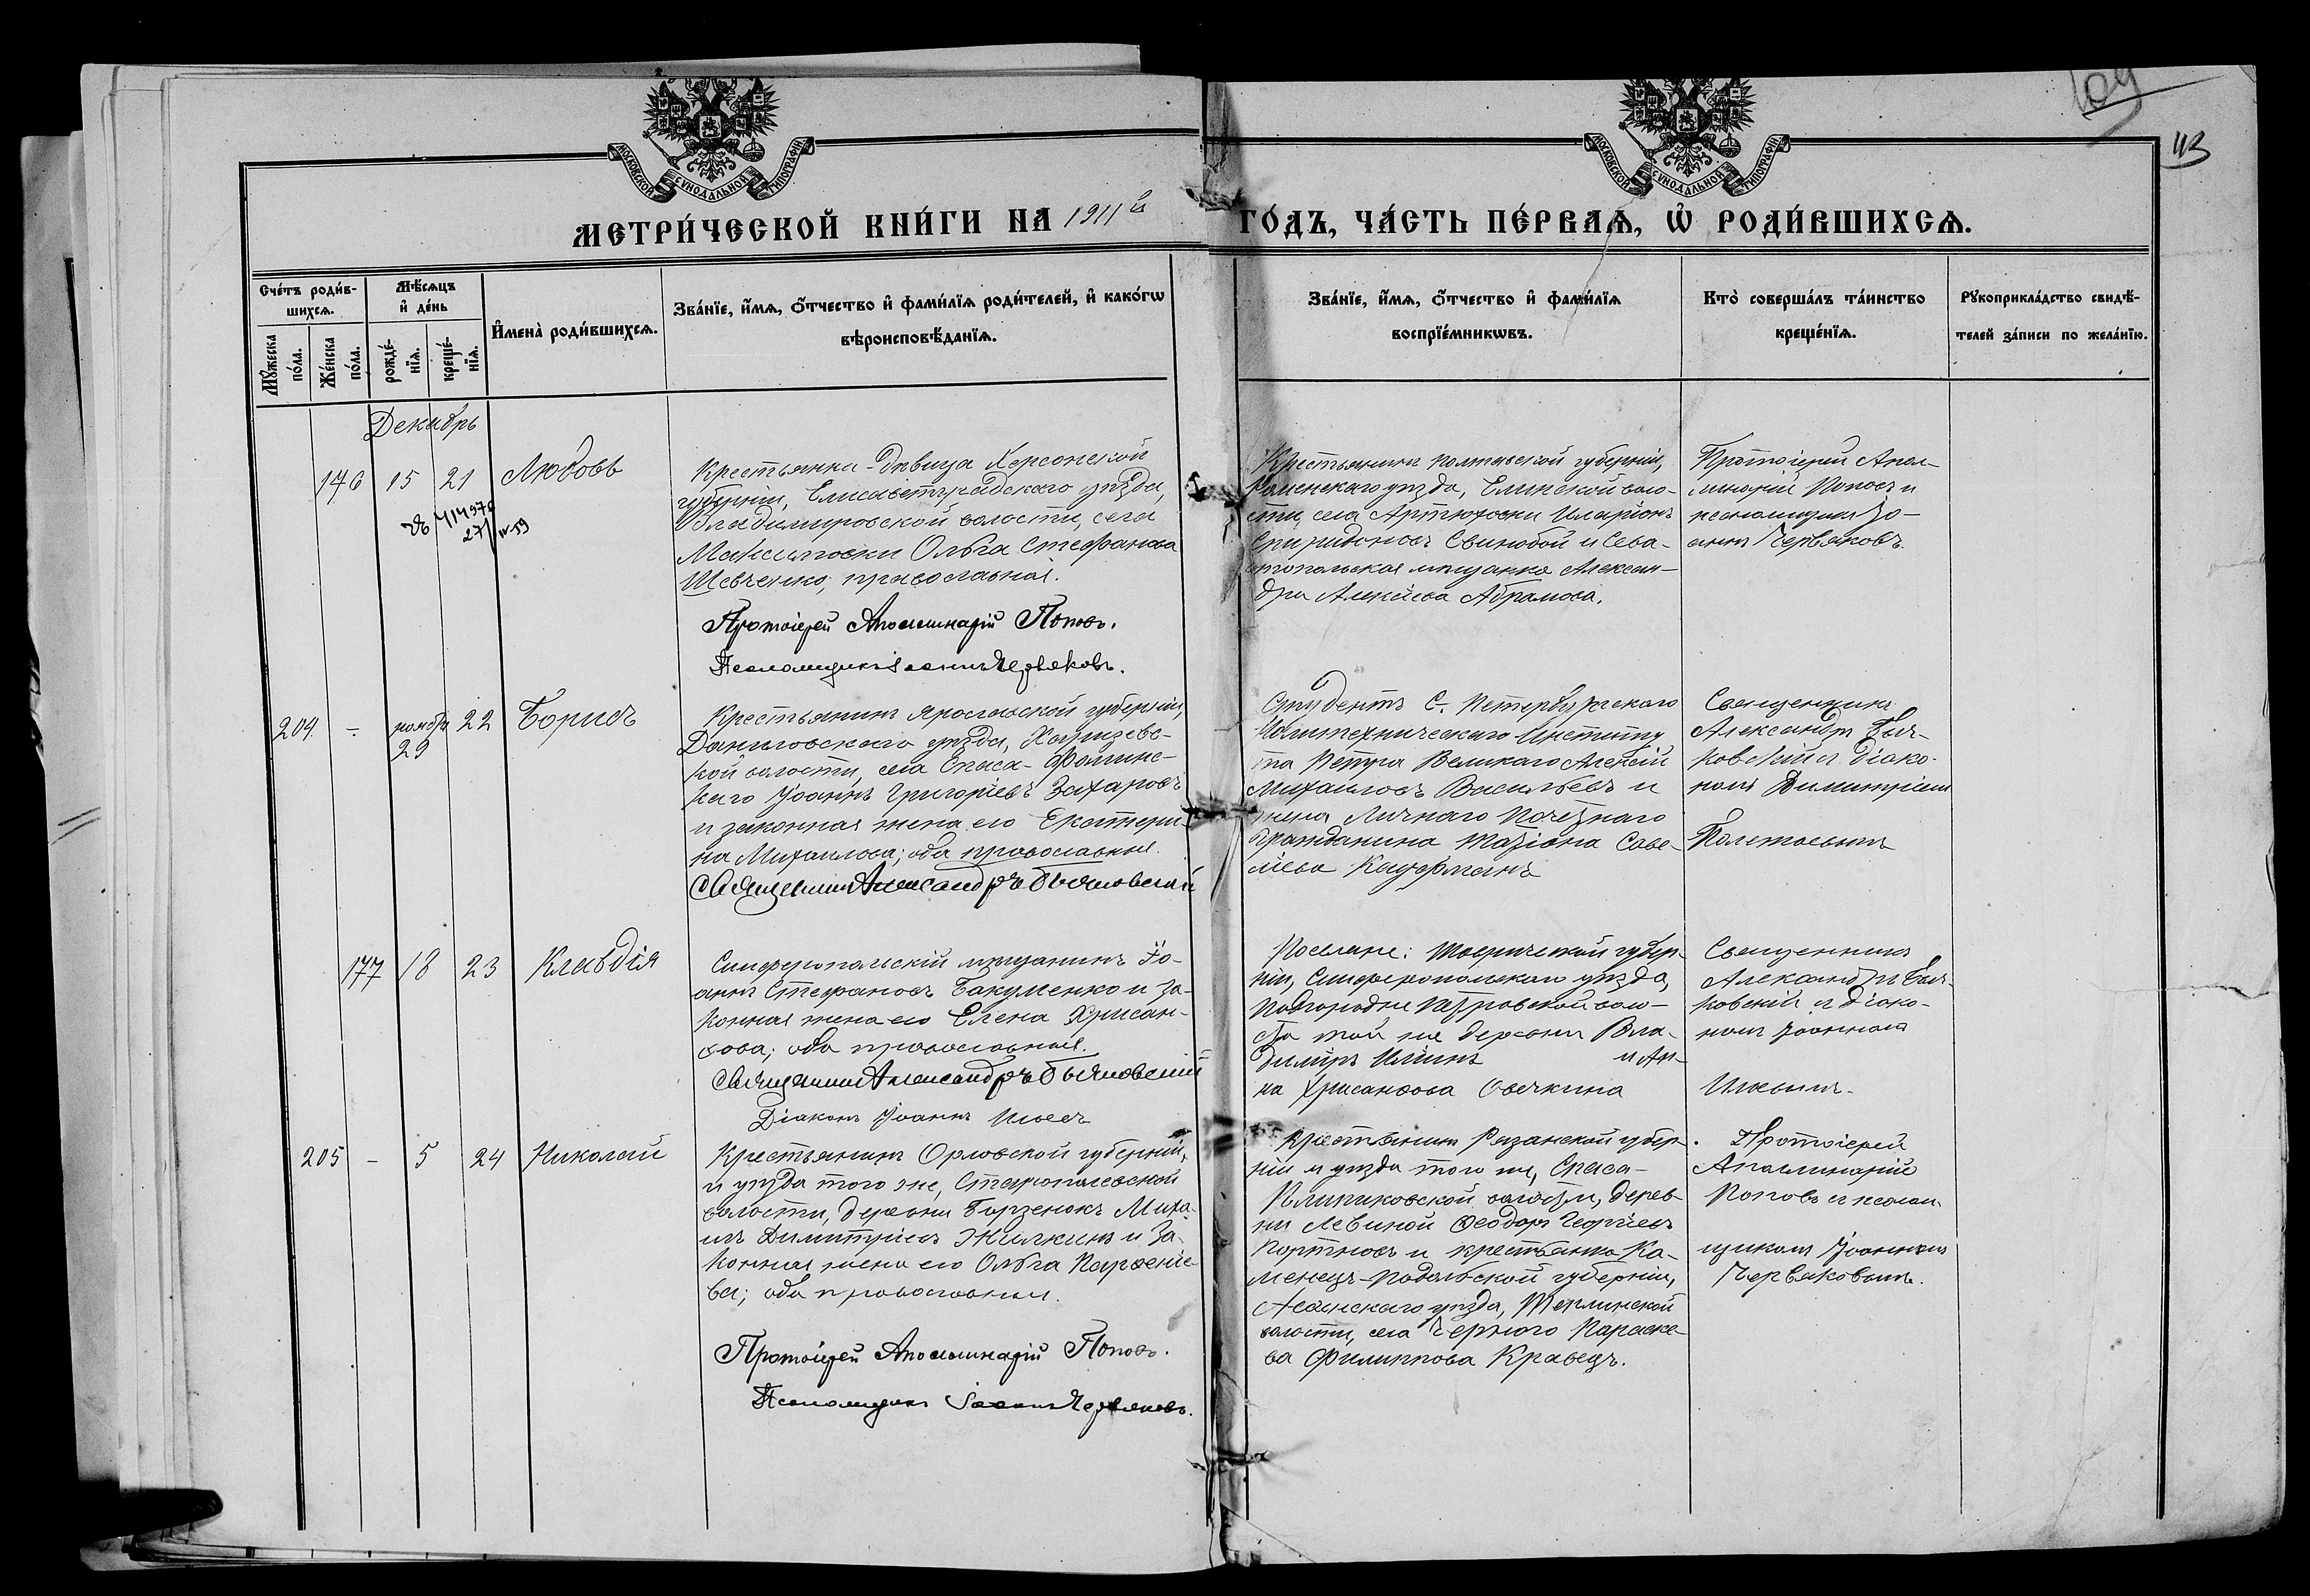 109
43
МОСКОВСКОЙ СѴНОДАЛЬНОЙ ТИПОГРАФІИ
МОСКОВСКОЙ СѴНОДАЛЬНОЙ ТИПОГРАФІИ
МЕТРИ́ЧЕСКОЙ КНИ́ГИ НА 1911й ГО́ДЪ, ЧА́СТЬ ПЕ́РВАѦ, Ѡ҆ РОДИ́ВШИХСѦ.
Сче́тъ роди́в-
шихсѧ.
Мꙋ́жеска по́ла.
Же́нска по́ла.
Мѣ́сѧцъ
и҆ де́нь
рожде́-
нїѧ.
креще́-
нїѧ.
И҆мена̀ роди́вшихсѧ.
Зва́нїе, и҆́мѧ, ѻ҆́тчество и҆ фами́лїѧ роди́телей, и҆ како́гѡ
вѣроисповѣ́данїѧ.
Зва́нїе, и҆́мѧ, ѻ҆́тчество и҆ фами́лїѧ
воспрїе́мникѡвъ.
Кто̀ соверша́лъ та́инство
креще́нїѧ.
Рꙋкоприкла́дство свидѣ́-
телей за́писи по жела́нїю.
Декабрь
176 15 21 Любовь
27/IV-59
Крестьянка-дѣвица Херсонской
губерніи, Елисаветградскаго уѣзда,
Владимировской волости, села
Ольга Стефанова
Шевченко, православная.
Протоіерей Аполлинарій Поповъ.
Псаломщикъ Іоаннъ Червяковъ.
Крестьянинъ Полтавской губерніи,
Роменскаго уѣзда, воло-
сти, села Артюховки Иларіонъ
Спиридоновъ и Сева-
стопольская мѣщанка Алексан-
дра Алексіева Абрамова.
Протоіерей Апол-
линарій Поповъ и
псаломщикъ Іо-
аннъ Червяковъ.
204 - ноября
29 22 Борисъ
Крестьянинъ Ярославской губерніи,
Даниловскаго уѣзда,
кой волости, села Спаса-Фоминс-
каго Іоаннъ Григоріевъ Захаровъ
и законная жена его Екатери-
на Михаилова; оба православные.
Священникъ Александръ
Студентъ С. Петербургскаго
Политехническаго Институ
та Петра Великаго Алексій
Михаиловъ Васильевъ и
жена Личнаго Почетнаго
гражданина Саве-
ліева
Священникъ
Александръ
и діако-
номъ Димитріемъ
Полетаевымъ
177 18 23 Клавдія
Симферопольскій мѣщанинъ Іо-
аннъ Стефановъ Бакуменко и за-
конная жена его Елена Хрисан-
ѳова; оба православные.
Священникъ Александръ
Діаконъ Іоаннъ Ильевъ
Поселяне: Таврической губер-
ніи, Симферопольскаго уѣзда,
Подгородне Петровской воло-
той же деревни Вла-
диміръ Ильинъ и Ан-
на Хрисанѳова Овечкина
Священникъ
Александръ
и діако-
номъ Іоанномъ
Ильевымъ.
205 - 5 24 Николай
Крестьянинъ Орловской губерніи,
и уѣзда того же,
волости, деревни Миха-
илъ Димитріевъ Жилкинъ и за-
конная жена его Ольга Парѳеніе-
ва; оба православные.
Протоіерей Аполлинарій Поповъ.
Псаломщикъ Іоаннъ Червяковъ.
Крестьянинъ Рязанской губер-
ніи и уѣзда того же, Спаса-
Клепиковской волости, дерев-
ни Левиной Ѳеодоръ Георгіевъ
Портновъ и крестьянка Ка-
менецъ-Подольской губерніи,
уѣзда,
волости, села Черного Параске-
ва Филиппова Кравецъ.
Протоіерей
Аполлинарій
Поповъ и псалом-
щикомъ Іоанномъ
Червяковымъ.